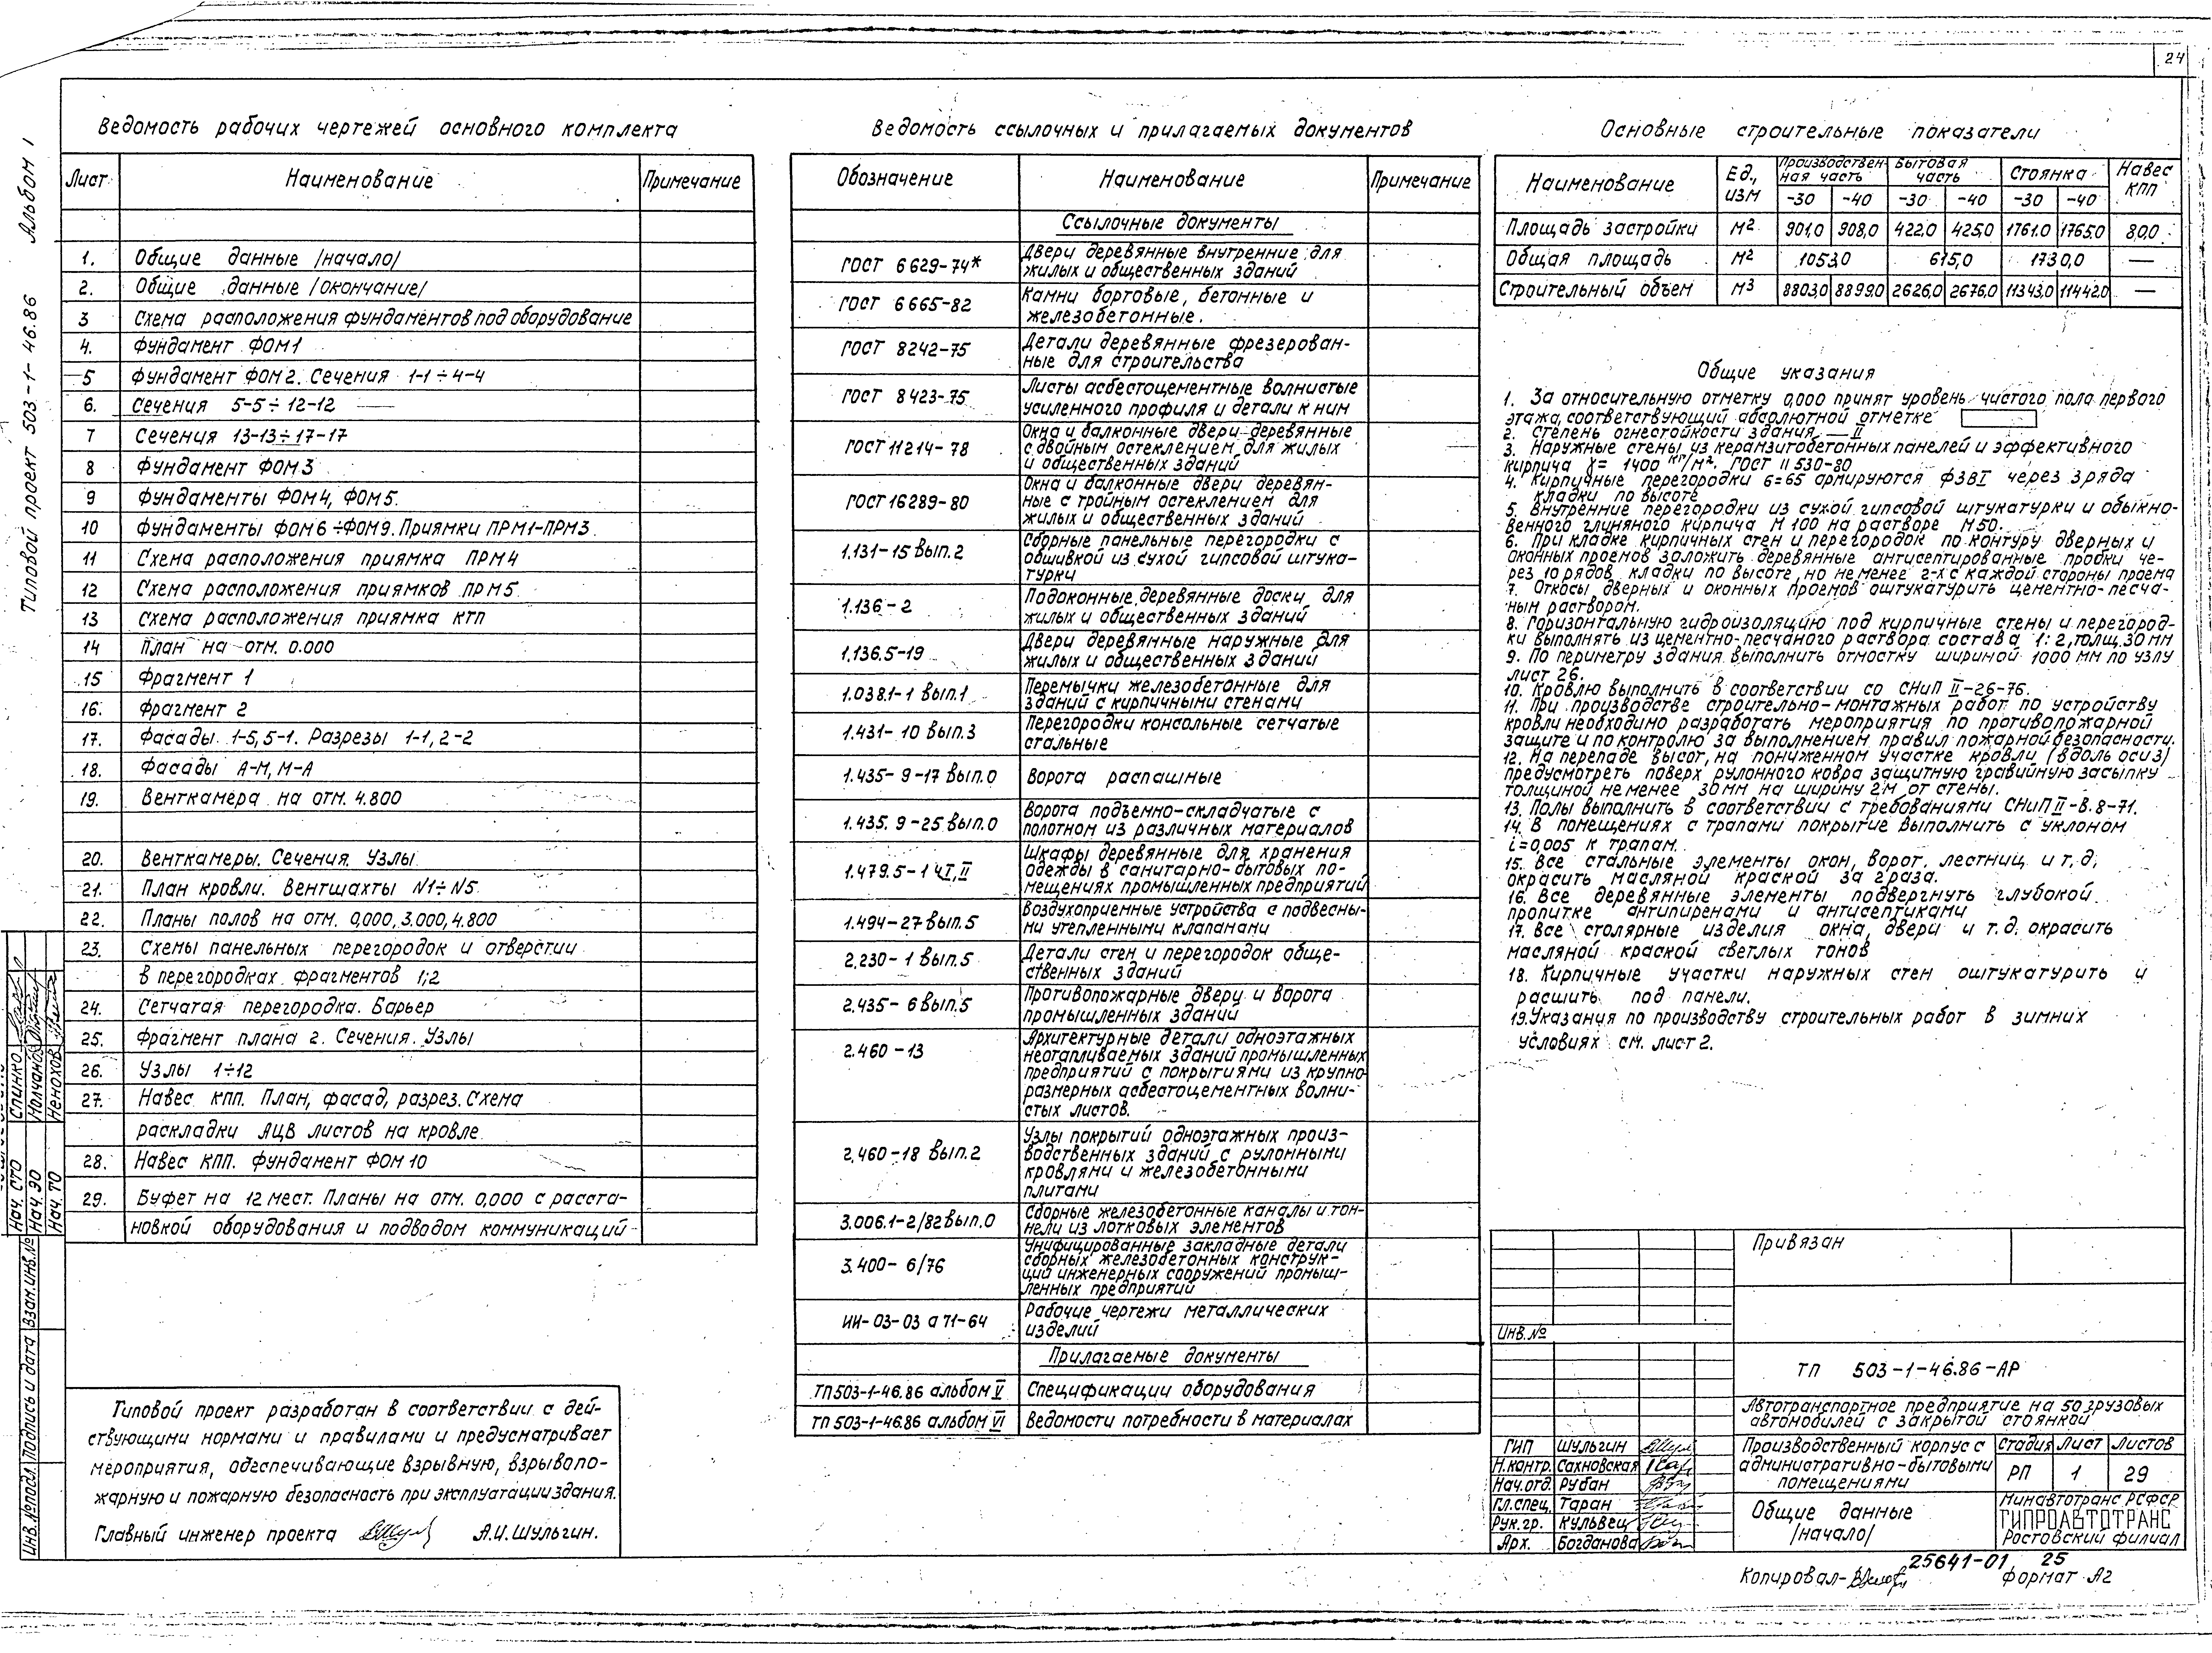 24
Типовой проект 503-1-46.86 Альбом 1
Ведомость рабочих чертежей основного комплекта
Лист Наименование Примечание
1. Общие данные /начало/
2. Общие данные /окончание/
3 Схема расположения фундаментов под оборудование
4. Фундамент ФОМ1
5 Фундамент ФОМ2. Сечения 1-1÷4-4
6. Сечения 5-5÷12-12
7 Сечения 13-13÷17-17
8 Фундамент ФОМ3
9 Фундаменты ФОМ4, ФОМ5.
10 Фундаменты ФОМ6÷ФОМ9. Приямки ПРМ1-ПРМ3
11 Схема расположения приямка ПРМ4
12 Схема расположения приямков ПРМ5
13 Схема расположения приямка КТП
14 План на отм. 0.000
15 Фрагмент 1
16. Фрагмент 2
17. Фасады 1-5, 5-1. Разрезы 1-1, 2-2
18. Фасады А-М, М-А
19. Венткамера на отм. 4.800
20. Венткамеры. Сечения. Узлы
21. План кровли. Вентшахты N1÷N5
22. Планы полов на отм. 0,000, 3.000, 4.800
23. Схемы панельных перегородок и отверстии
в перегородках фрагментов 1;2
24. Сетчатая перегородка. Барьер
25. Фрагмент плана 2. Сечения. Узлы
26. Узлы 1÷12
27. Навес КПП. План, фасад, разрез. Схема
раскладки АЦВ листов на кровле
28. Навес КПП. Фундамент ФОМ10
29. Буфет на 12 мест. Планы на отм. 0,000 с расста-
новкой оборудования и подводом коммуникаций
Типовой проект разработан в соответствии с дей-
ствующими нормами и правилами и предусматривает
мероприятия, обеспечивающие взрывную, взрывопо-
жарную и пожарную безопасность при эксплуатации здания.
Главный инженер проекта А.И. Шульгин.
Ведомость ссылочных и прилагаемых документов
Обозначение Наименование Примечание
Ссылочные документы
ГОСТ 6629-74* Двери деревянные внутренние для
жилых и общественных зданий
ГОСТ 6665-82 Камни бортовые, бетонные и
железобетонные.
ГОСТ 8242-75 Детали деревянные фрезерован-
ные для строительства
ГОСТ 8423-75 Листы асбестоцементные волнистые
усиленного профиля и детали к ним
ГОСТ 11214-78 Окна и балконные двери деревянные
с двойным остеклением для жилых
и общественных зданий
ГОСТ 16289-80 Окна и балконные двери деревян-
ные с тройным остеклением для
жилых и общественных зданий
1.131-15 вып.2 Сборные панельные перегородки с
обшивкой из сухой гипсовой штука-
турки
1.136-2 Подоконные деревянные доски для
жилых и общественных зданий
1.136.5-19 Двери деревянные наружные для
жилых и общественных зданий
1.038.1-1 вып.1 Перемычки железобетонные для
зданий с кирпичными стенами
1.431-10 вып.3 Перегородки консольные сетчатые
стальные
1.435-9-17 вып.0 Ворота распашные
1.435.9-25 вып.0 Ворота подъемно-складчатые с
полотном из различных материалов
1.479.5-1 ч I, II Шкафы деревянные для хранения
одежды в санитарно-бытовых по-
мещениях промышленных предприятий
1.494-27 вып.5 Воздухоприемные устройства с подвесны-
ми утепленными клапанами
2.230-1 вып.5 Детали стен и перегородок обще-
ственных зданий
2.435-6 вып.5 Противопожарные двери и ворота
промышленных зданий
2.460-13 Архитектурные детали одноэтажных
неотапливаемых зданий промышленных
предприятий с покрытиями из крупно-
размерных асбестоцементных волни-
стых листов.
2.460-18 вып.2 Узлы покрытий одноэтажных произ-
водственных зданий с рулонными
кровлями и железобетонными
плитами
3.006.1-2/82 вып.0 Сборные железобетонные каналы и тон-
нели из лотковых элементов
3.400-6/76 Унифицированные закладные детали
сборных железобетонных конструк-
ций инженерных сооружений промыш-
ленных предприятий
ИИ-03-03 а 71-64 Рабочие чертежи металлических
изделий
Прилагаемые документы
ТП 503-1-46.86 альбом V Спецификации оборудования
ТП 503-1-46.86 альбом VI Ведомости потребности в материалах
Основные строительные показатели
Наименование Ед. изм Производствен-ная часть Бытовая часть Стоянка Навес КПП
-30 -40 -30 -40 -30 -40
Площадь застройки м² 901,0 908,0 422,0 425,0 1761.0 1765.0 80,0
Общая площадь м² 1053,0 615,0 1730,0 —
Строительный объем м³ 8803,0 8899,0 2626,0 2676,0 11343,0 11442,0 —
Общие указания
1. За относительную отметку 0,000 принят уровень чистого пола первого
этажа, соответствующий абсолютной отметке
2. Степень огнестойкости здания — II
3. Наружные стены из керамзитобетонных панелей и эффективного
кирпича γ = 1400 кг/м². ГОСТ 11530-80
4. Кирпичные перегородки б=65 армируются ф3ВI через 3 ряда
кладки по высоте
5. Внутренние перегородки из сухой гипсовой штукатурки и обыкно-
венного глиняного кирпича М100 на растворе М50.
6. При кладке кирпичных стен и перегородок по контуру дверных и
оконных проемов заложить деревянные антисептированные пробки че-
рез 10 рядов кладки по высоте, но не менее 2-х с каждой стороны проема
7. Откосы дверных и оконных проемов оштукатурить цементно-песча-
ным раствором.
8. Горизонтальную гидроизоляцию под кирпичные стены и перегород-
ки выполнять из цементно-песчаного раствора состава 1:2, толщ. 30 мм
9. По периметру здания выполнить отмостку шириной 1000 мм по узлу
лист 26.
10. Кровлю выполнить в соответствии со СНиП II-26-76.
11. При производстве строительно-монтажных работ по устройству
кровли необходимо разработать мероприятия по противопожарной
защите и по контролю за выполнением правил пожарной безопасности.
12. На перепаде высот, на пониженном участке кровли (вдоль оси 3)
предусмотреть поверх рулонного ковра защитную гравийную засыпку
толщиной не менее 30мм на ширину 2м от стены.
13. Полы выполнить в соответствии с требованиями СНиП II-В.8-71.
14. В помещениях с трапами покрытие выполнить с уклоном
i=0,005 к трапам.
15. Все стальные элементы окон, ворот, лестниц и т.д.
окрасить масляной краской за 2 раза.
16. Все деревянные элементы подвергнуть глубокой
пропитке антипиренами и антисептиками
17. Все столярные изделия окна, двери и т.д. окрасить
масляной краской светлых тонов
18. Кирпичные участки наружных стен оштукатурить и
расшить под панели.
19. Указания по производству строительных работ в зимних
условиях см. лист 2.
Привязан
Инв.№
ТП 503-1-46.86-АР
Автотранспортное предприятие на 50 грузовых
автомобилей с закрытой стоянкой
ГИП Шульгин
Н.контр. Сахновская
Нач.отд. Рубан
Гл.спец. Таран
Рук.гр. Кульвец
Арх. Богданова
Производственный корпус с
административно-бытовыми
помещениями
Стадия Лист Листов
РП 1 29
Общие данные
/начало/
Минавтотранс РСФСР
ГИПРОАВТОТРАНС
Ростовский филиал
25641-01 25
Копировал- Формат А2
Нач. СТО Спинко
Нач. ЭО Молчанов
Нач. ТО Ненохов
Инв.№подл. Подпись и дата Взам.инв.№